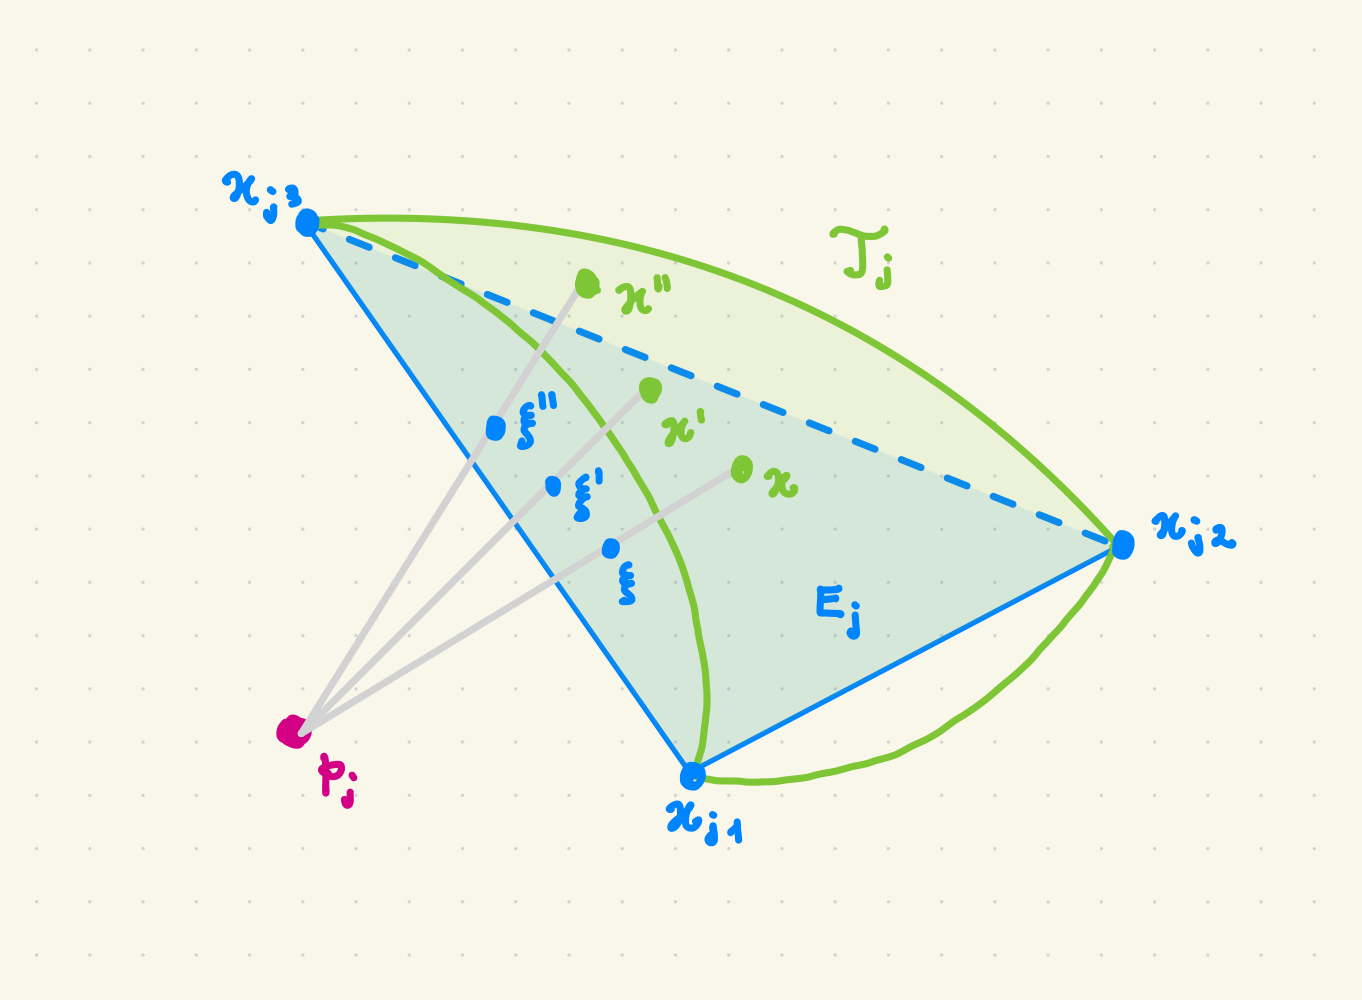 x_{j3}
T_j
x''
ξ''
x'
x
ξ'
x_{j2}
ξ
E_j
p_j
x_{j1}